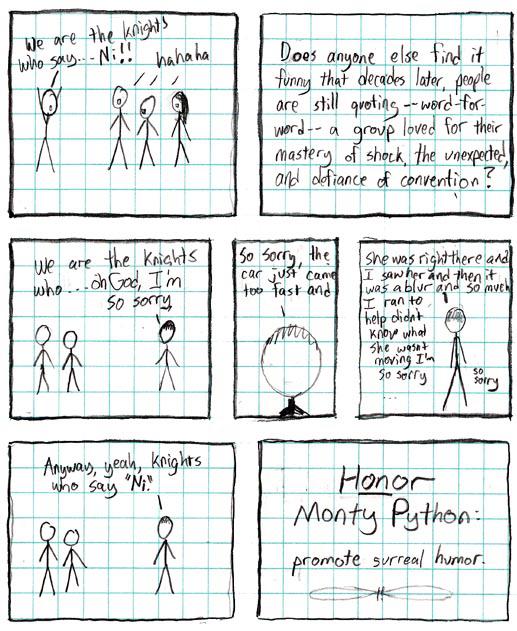 We are the knights
who say...Ni!!
hahaha
Does anyone else find it
funny that decades later, people
are still quoting--word-for-
word-- a group loved for their
mastery of shock, the unexpected,
and defiance of convention?
We are the Knights
who...oh God, I'm
so sorry
So sorry, the
car just came
too fast and
She was right there and
I saw her and then it
was a blur and so much
I ran to
help didn't
know what
she wasn't
moving I'm
so sorry
...
so
sorry
Anyway, yeah, knights
who say "Ni."
Honor
Monty Python:
promote surreal humor.